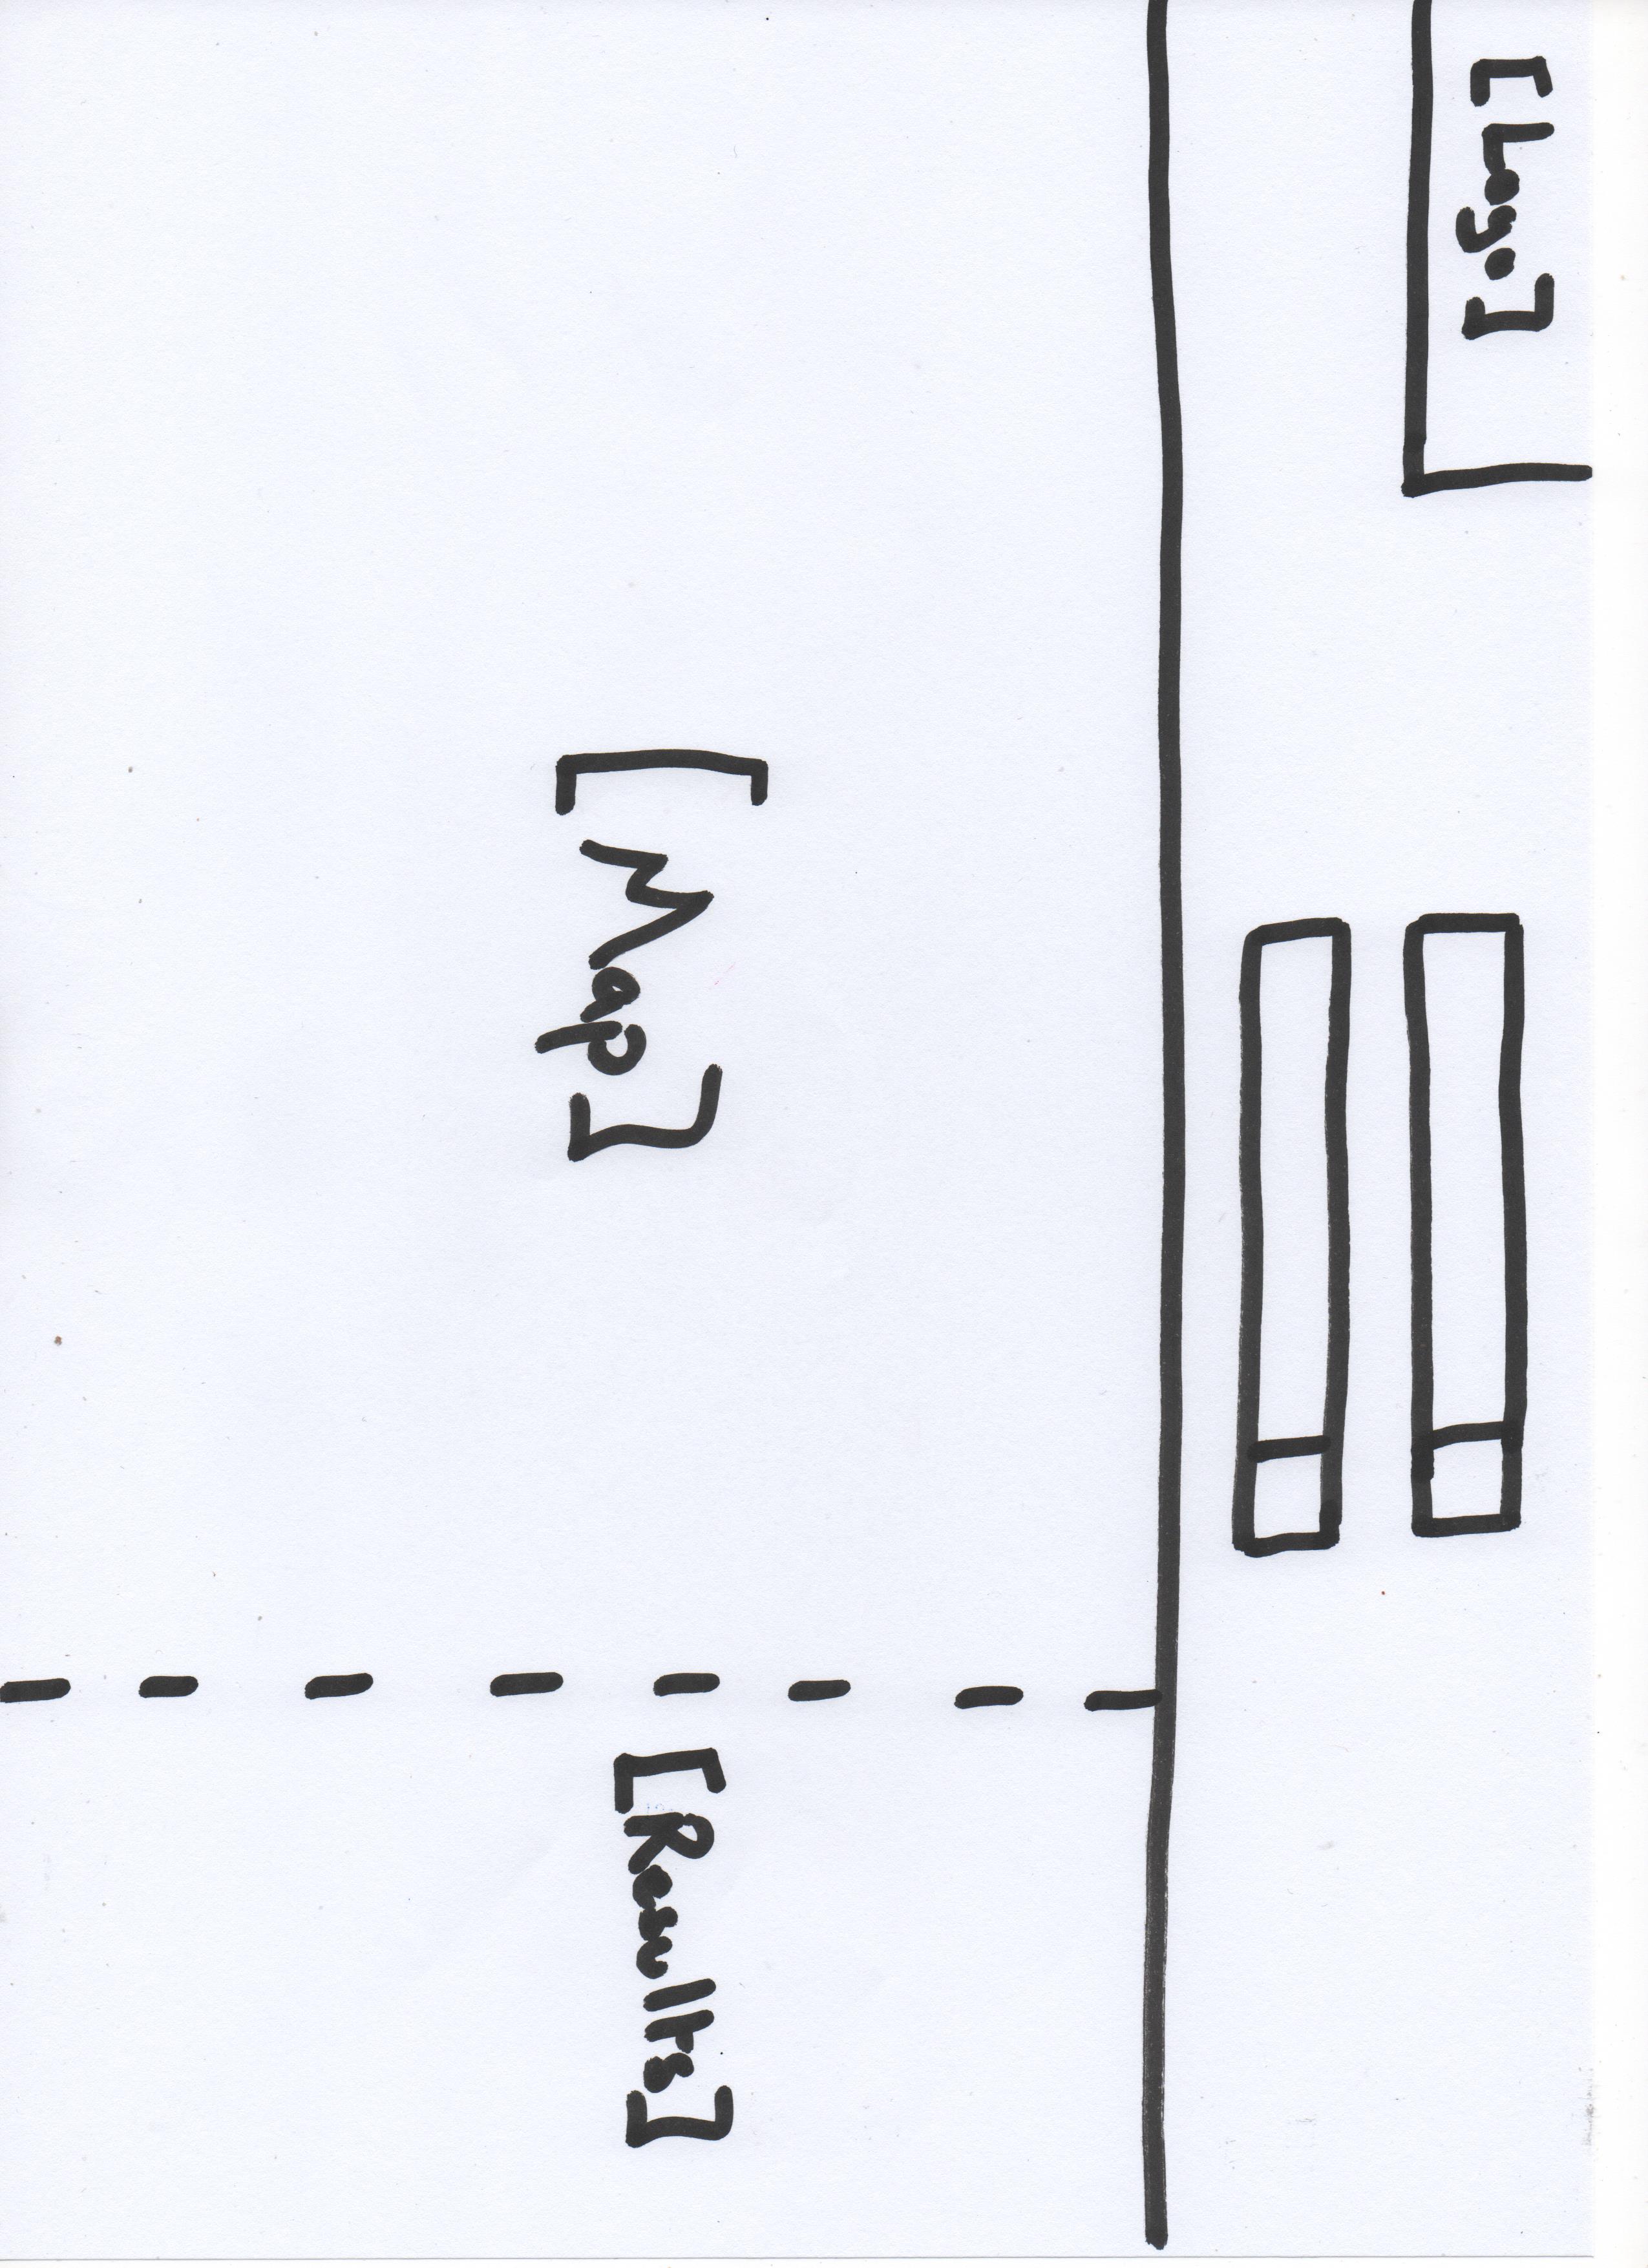 [Logo]
[Map]
[Results]